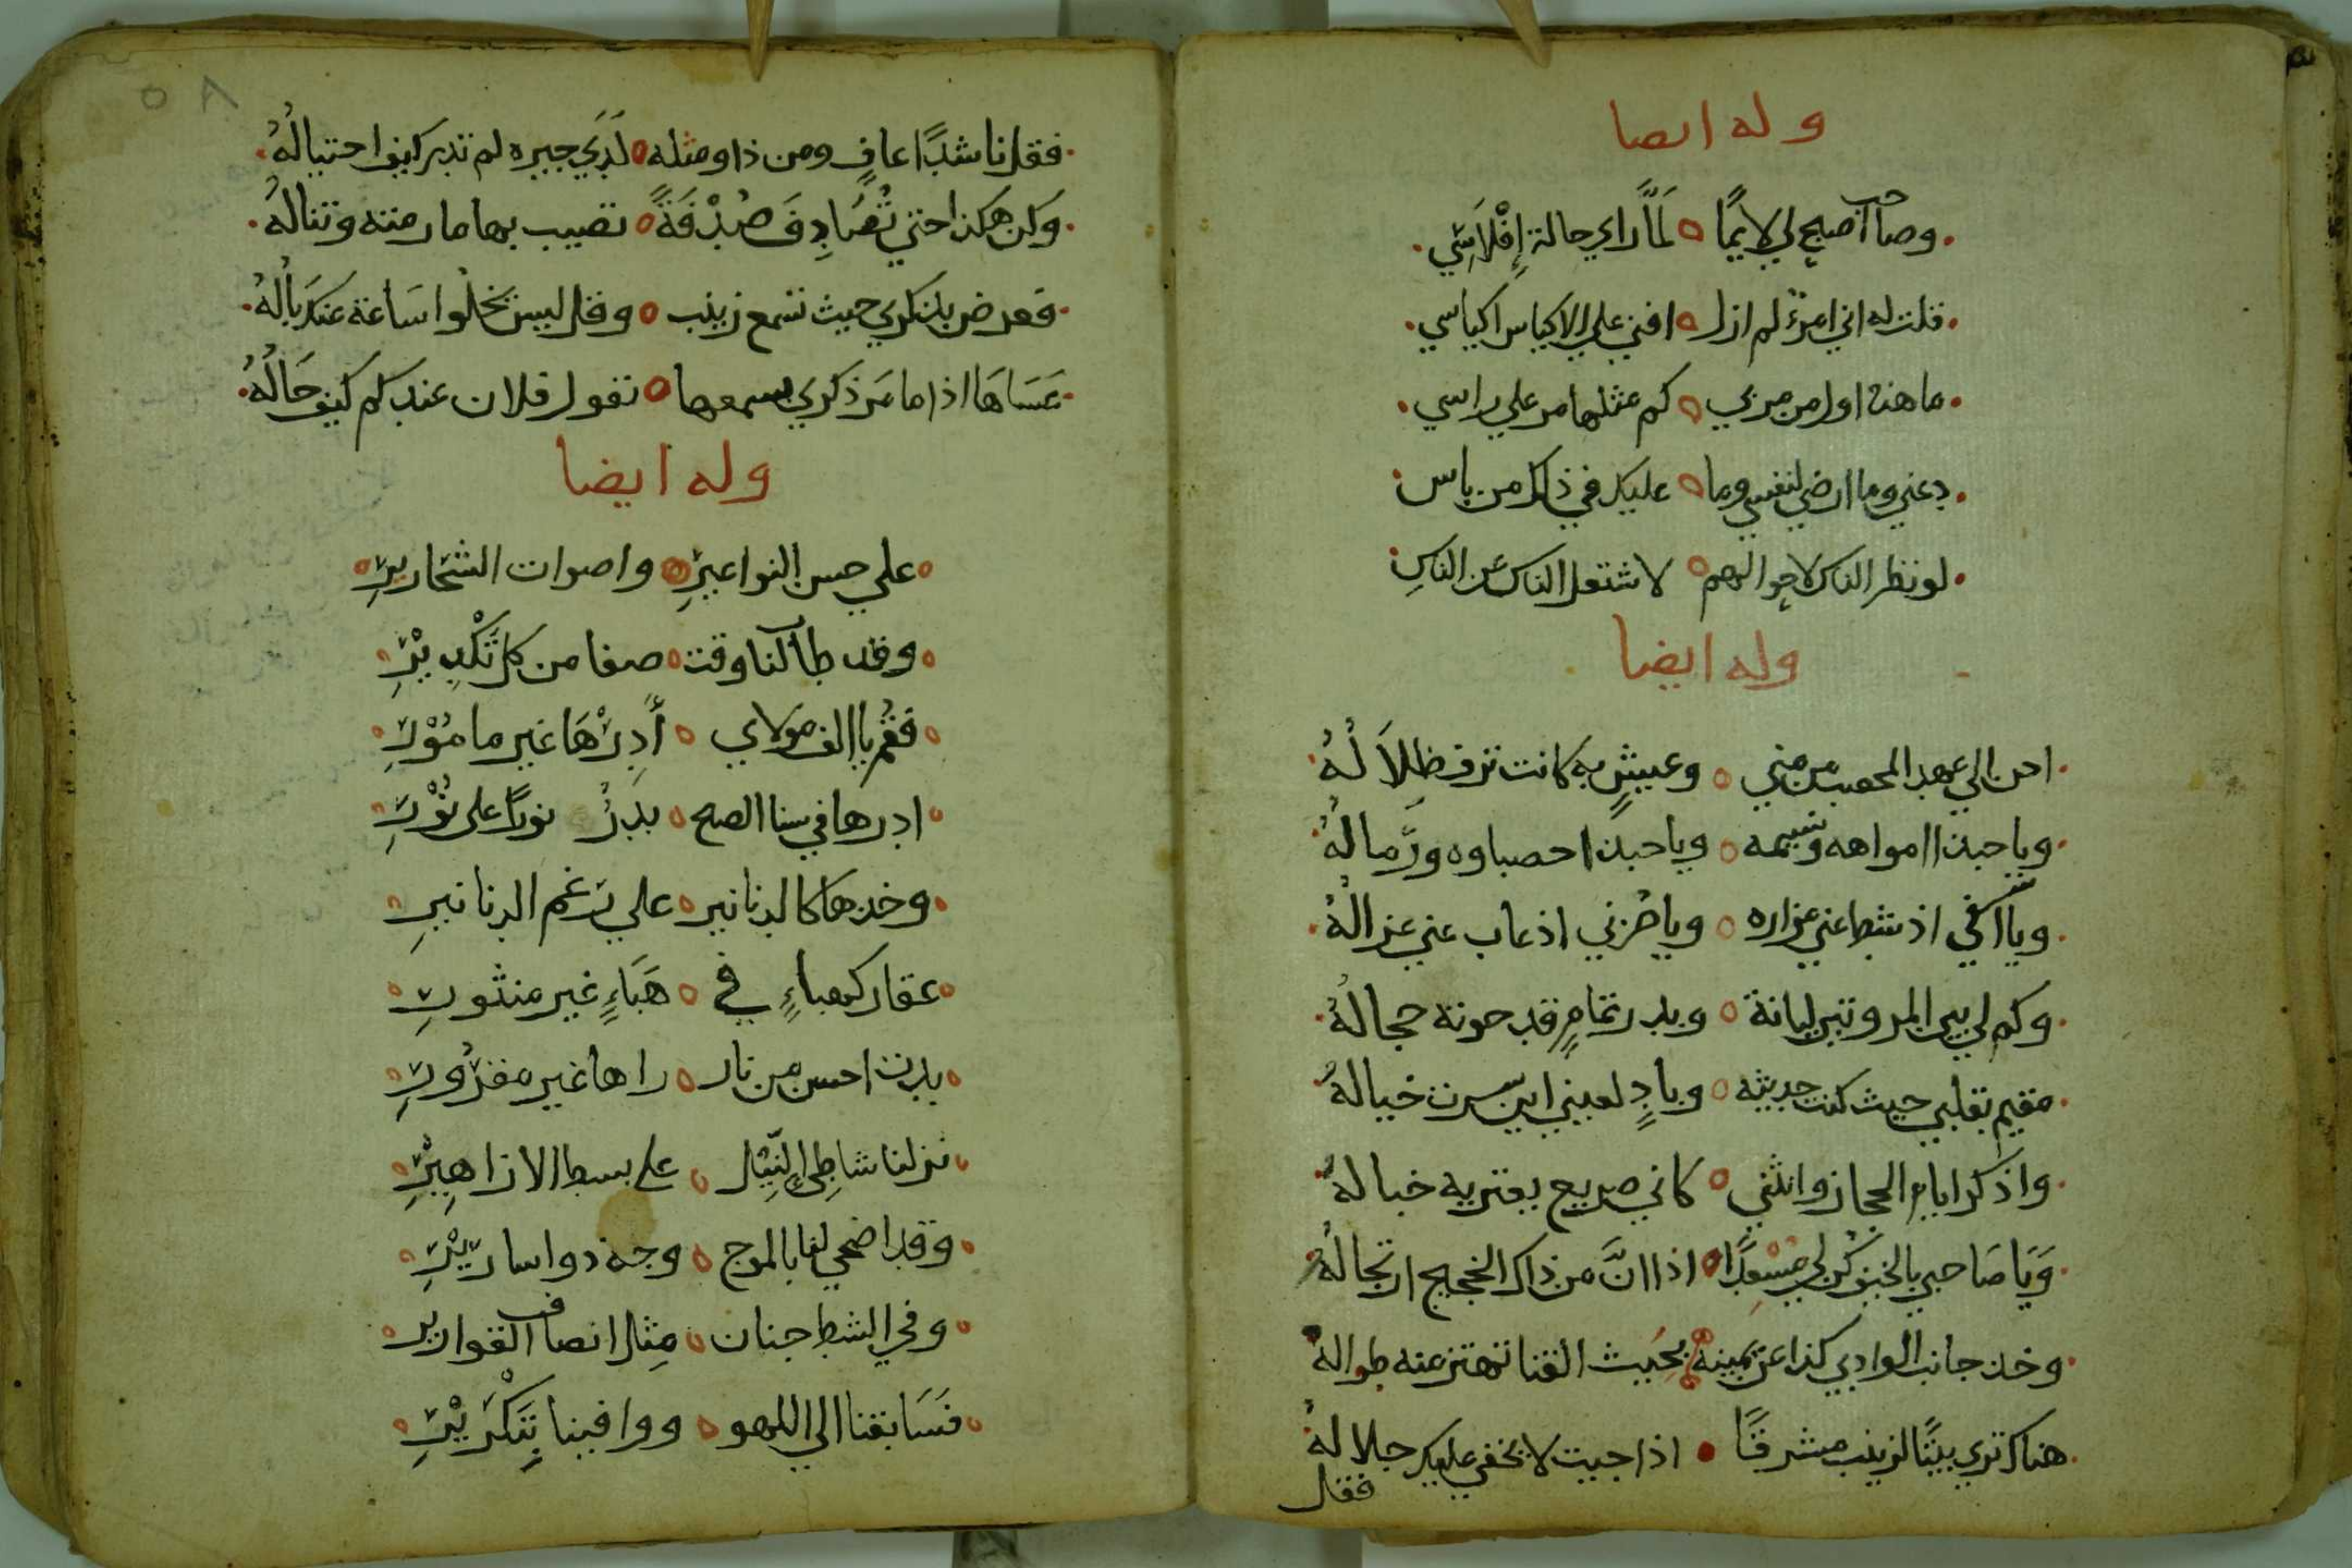 وله ايضا
وصاحب اصبح لي لايمًا لَمَّا راي حالة إِفْلَاسِي
قلت له اني امرؤ لم ازل افني علي الاكياس اكياسي
ما هذه اول من مر بي كم مثلها مر علي راسي
دعني وما ارضي لنفسي وما عليك في ذاك من باس
لو نظر الناس لاحوالهم لاشتغل الناس عن الناسِ
وله ايضا
احن الي عهد المحصب من مني وعيشٍ به كانت ترف ظِلَالُهُ
ويا حبذا امواهه ونسيمه ويا حبذا حصباوه ورَماله
ويا اسفي اذ شط عني مزاره ويا حزني اذ غاب عني غزالُهُ
وكم لي بين المروتين لبانة وبدر تمامٍ قد حوته حجالهُ
مقيم بقلبي حيث كنت حديثه وبادٍ لعيني اين سرت خياله
واذكر ايام الحجاز وانثني كاني صريع يعتريه خباله
وَيَا صَاحبي بالخيف كن لي مُسْعِدًا اذا انَّ من ذاك الحجيج ارتحالُهُ
وخذ جانب الوادي كذا عن يمينه بِحَيث القنا تهتز عنه طواله
هناك تري بيتًا لزينب مشرقًا اذا جيت لا يخفي عليك جلاله
فقل
٥٨
فقل ناشدًا عافٍ ومن ذا ومثله لَدَي جيره لم تدر كيف احتيالُهُ
وَكن هكذا حتي تُصَادِفَ صُدْفَةً تصيب بها ما رمته وتناله
فعرض بذكري حيث تسمع زينب وقل ليس يخلُوا ساعة عنك بالُهُ
عَسَاهَا اذا ما مَر ذكري بسمعها تقول فلان عندكم كيف حَالُهُ
وله ايضا
علي حس النواعيرِ واصوات الشحاريرِ
وقد طاب لنا وقت صفا من كل تَكْدِيْرِ
فقُم يا الف مولاي أَدِرْهَا غير مامُوْرِ
ادرها في سنا الصبح بدرُ نورًا على نُوْرِ
وخذها كالدنانير علي رَغم الدنانيرِ
عقار كهباءٍ في هَبَاءٍ غير منثورِ
بدت احسن من نار راها غير مقرُورِ
نزلنا شاطِئِ النِّيل على بسط الازاهِيْرِ
وقد اضحي لها بالموج وجه ذو اساريْرِ
وفي الشط جنان مثل انصاف القوارير
فسَابقنا الي اللهو ووافينا بِتَبْكِيْرِ